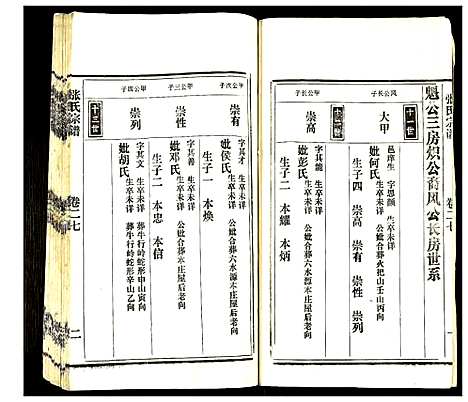 张氏宗谱
卷二七
魁公三房烘公裔风公长房世系
十一世
风公长子
大甲
邑庠生 字思颜
生卒未详
妣何氏
公妣合葬火把山壬山丙向
生子四 崇高 崇有 崇性 崇列
十二世
甲公长子
崇高
字其能
生卒未详
妣彭氏
生子二 本耀 本炳
甲公次子
崇有
字其才
生卒未详
妣侯氏
公妣合葬六水源不庄屋后老向
生子一 本焕
甲公三子
崇性
字其善
生卒未详
妣邓氏
公妣合葬六水源本庄屋后老向
生子二 本忠 本信
甲公四子
崇列
字其文
生卒未详
葬牛行岭蛇形申山寅向
妣胡氏
生卒未详
葬牛行岭蛇形辛山乙向
十二世
张氏宗谱
卷二七
二